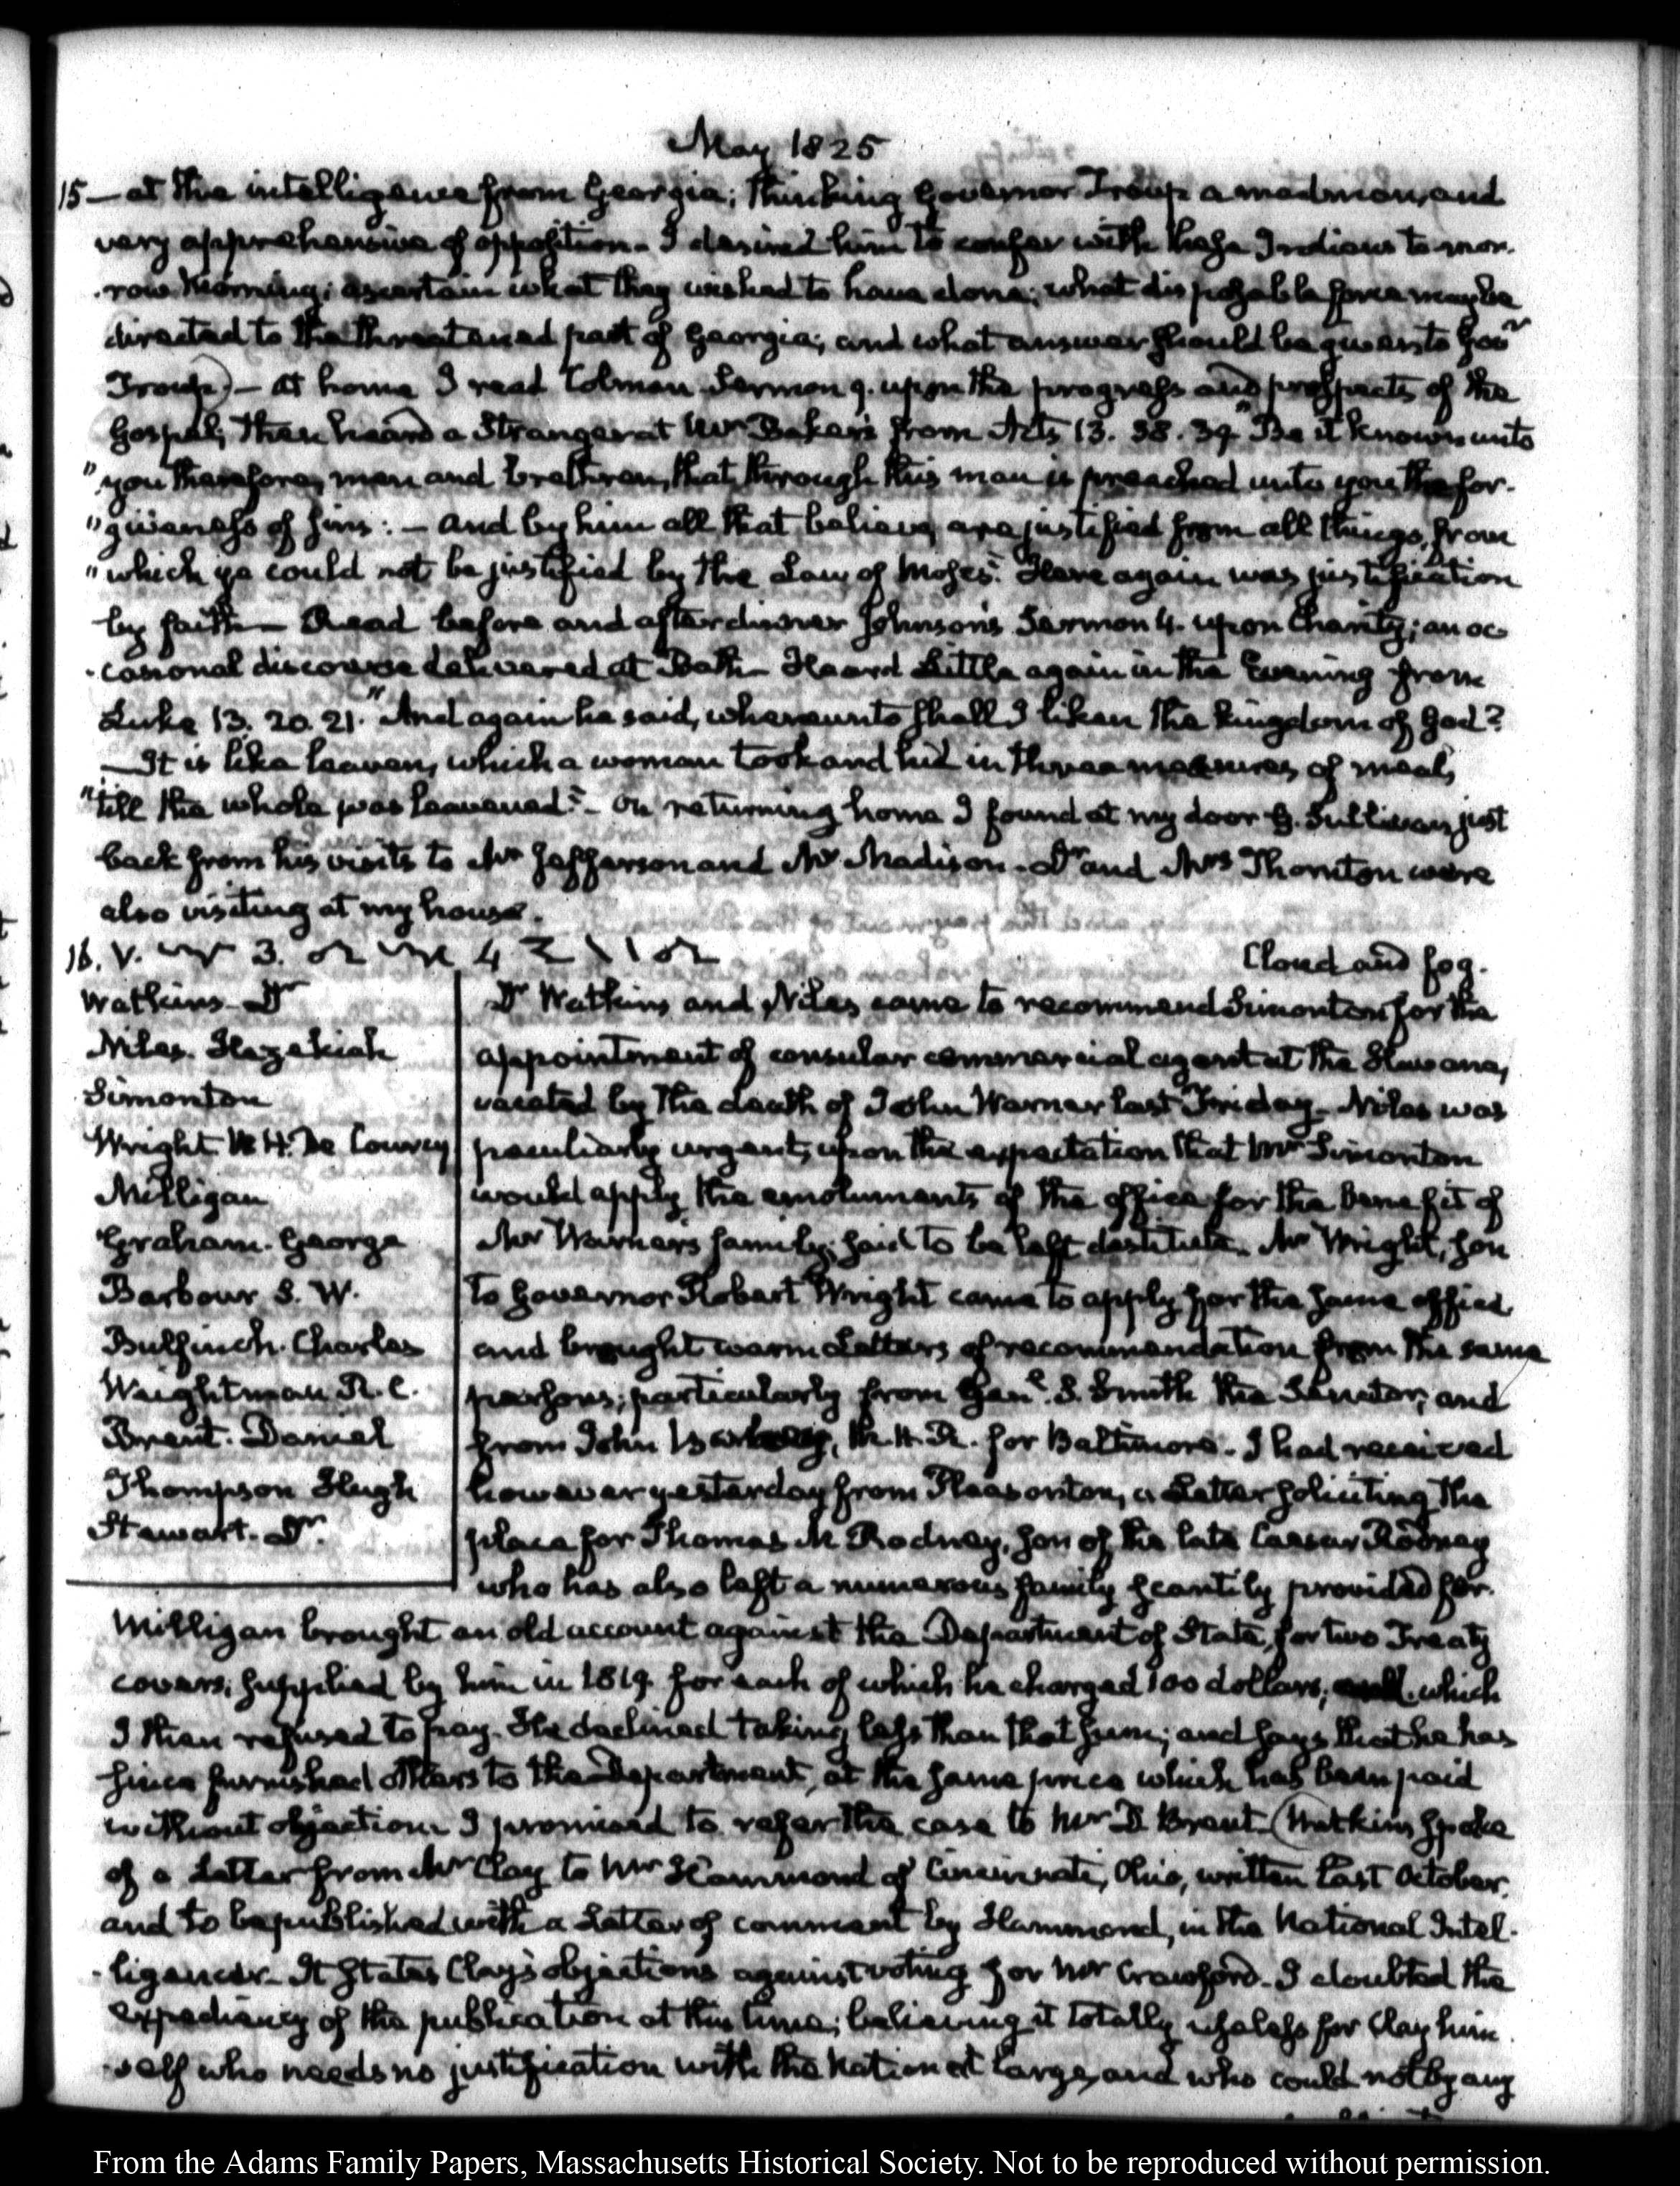 May 1825
15— at the intelligence from Georgia; thinking Governor Troup a madman, and
very apprehensive of opposition. I desired him to confer with these Indians to mor-
row Morning; ascertain what they wished to have done; what disposable force may be
directed to the threatened part of Georgia; and what answer should be given to Govr
Troup)— at home I read Colman Sermon 9. upon the progress and prospects of the
Gospel; then heard a Stranger at Mr Baker's from Acts 13. 38. 39 "Be it known unto
"you therefore, men and brethren, that through this man is preached unto you the for-
"giveness of sins:— and by him all that believe, are justified from all things, from
"which ye could not be justified by the Law of Moses." Here again was justification
by faith— Read before and after dinner Johnson's Sermon 4. upon Charity; an oc-
-casional discourse delivered at Bath— Heard Little again in the Evening from
Luke 13. 20. 21. "And again he said, whereunto shall I liken the kingdom of God?
—It is like leaven, which a woman took and hid in three measures of meal,
"till the whole was leavened."— On returning home I found at my door G. Sullivan just
back from his visits to Mr Jefferson and Mr Madison. Dr and Mrs Thornton were
also visiting at my house.
16. V. 3. 4
Cloud and fog.
Watkins—Dr
Niles. Hezekiah
Simonton
Wright W. H. De Courcy
Milligan
Graham. George
Barbour S. W.
Bulfinch. Charles
Weightman R. C.
Brent. Daniel
Thompson Hugh
Stewart. Dr.
Dr Watkins and Niles came to recommend Simonton for the
appointment of consular commercial agent at the Havana,
vacated by the death of John Warner last Friday— Niles was
peculiarly urgent, upon the expectation that Mr Simonton
would apply the emoluments of the office for the benefit of
Mr Warner's family, said to be left destitute. Mr Wright, son
to Governor Robert Wright came to apply for the same office,
and brought warm Letters of recommendation from the same
persons; particularly from Genl. S. Smith the Senator, and
from John Barney, M. H. R. for Baltimore. I had received
however yesterday from Pleasonton, a Letter soliciting the
place for Thomas M Rodney, son of the late Caesar Rodney
who has also left a numerous family scantily provided for.
Milligan brought an old account against the Department of State, for two Treaty
covers, supplied by him in 1819. for each of which he charged 100 dollars; which
I then refused to pay. He declined taking less than that sum; and says that he has
since furnished others to the Department, at the same price which has been paid
without objection. I promised to refer the case to Mr D Brent— (Watkins spoke
of a Letter from Mr Clay to Mr Hammond of Cincinnati, Ohio, written last October,
and to be published with a Letter of comment by Hammond, in the National Intel-
-ligencer— It states Clay's objections against voting for Mr Crawford— I doubted the
expediency of the publication at this time; believing it totally useless for Clay him-
-self who needs no justification with the Nation at large, and who could not by any
From the Adams Family Papers, Massachusetts Historical Society. Not to be reproduced without permission.